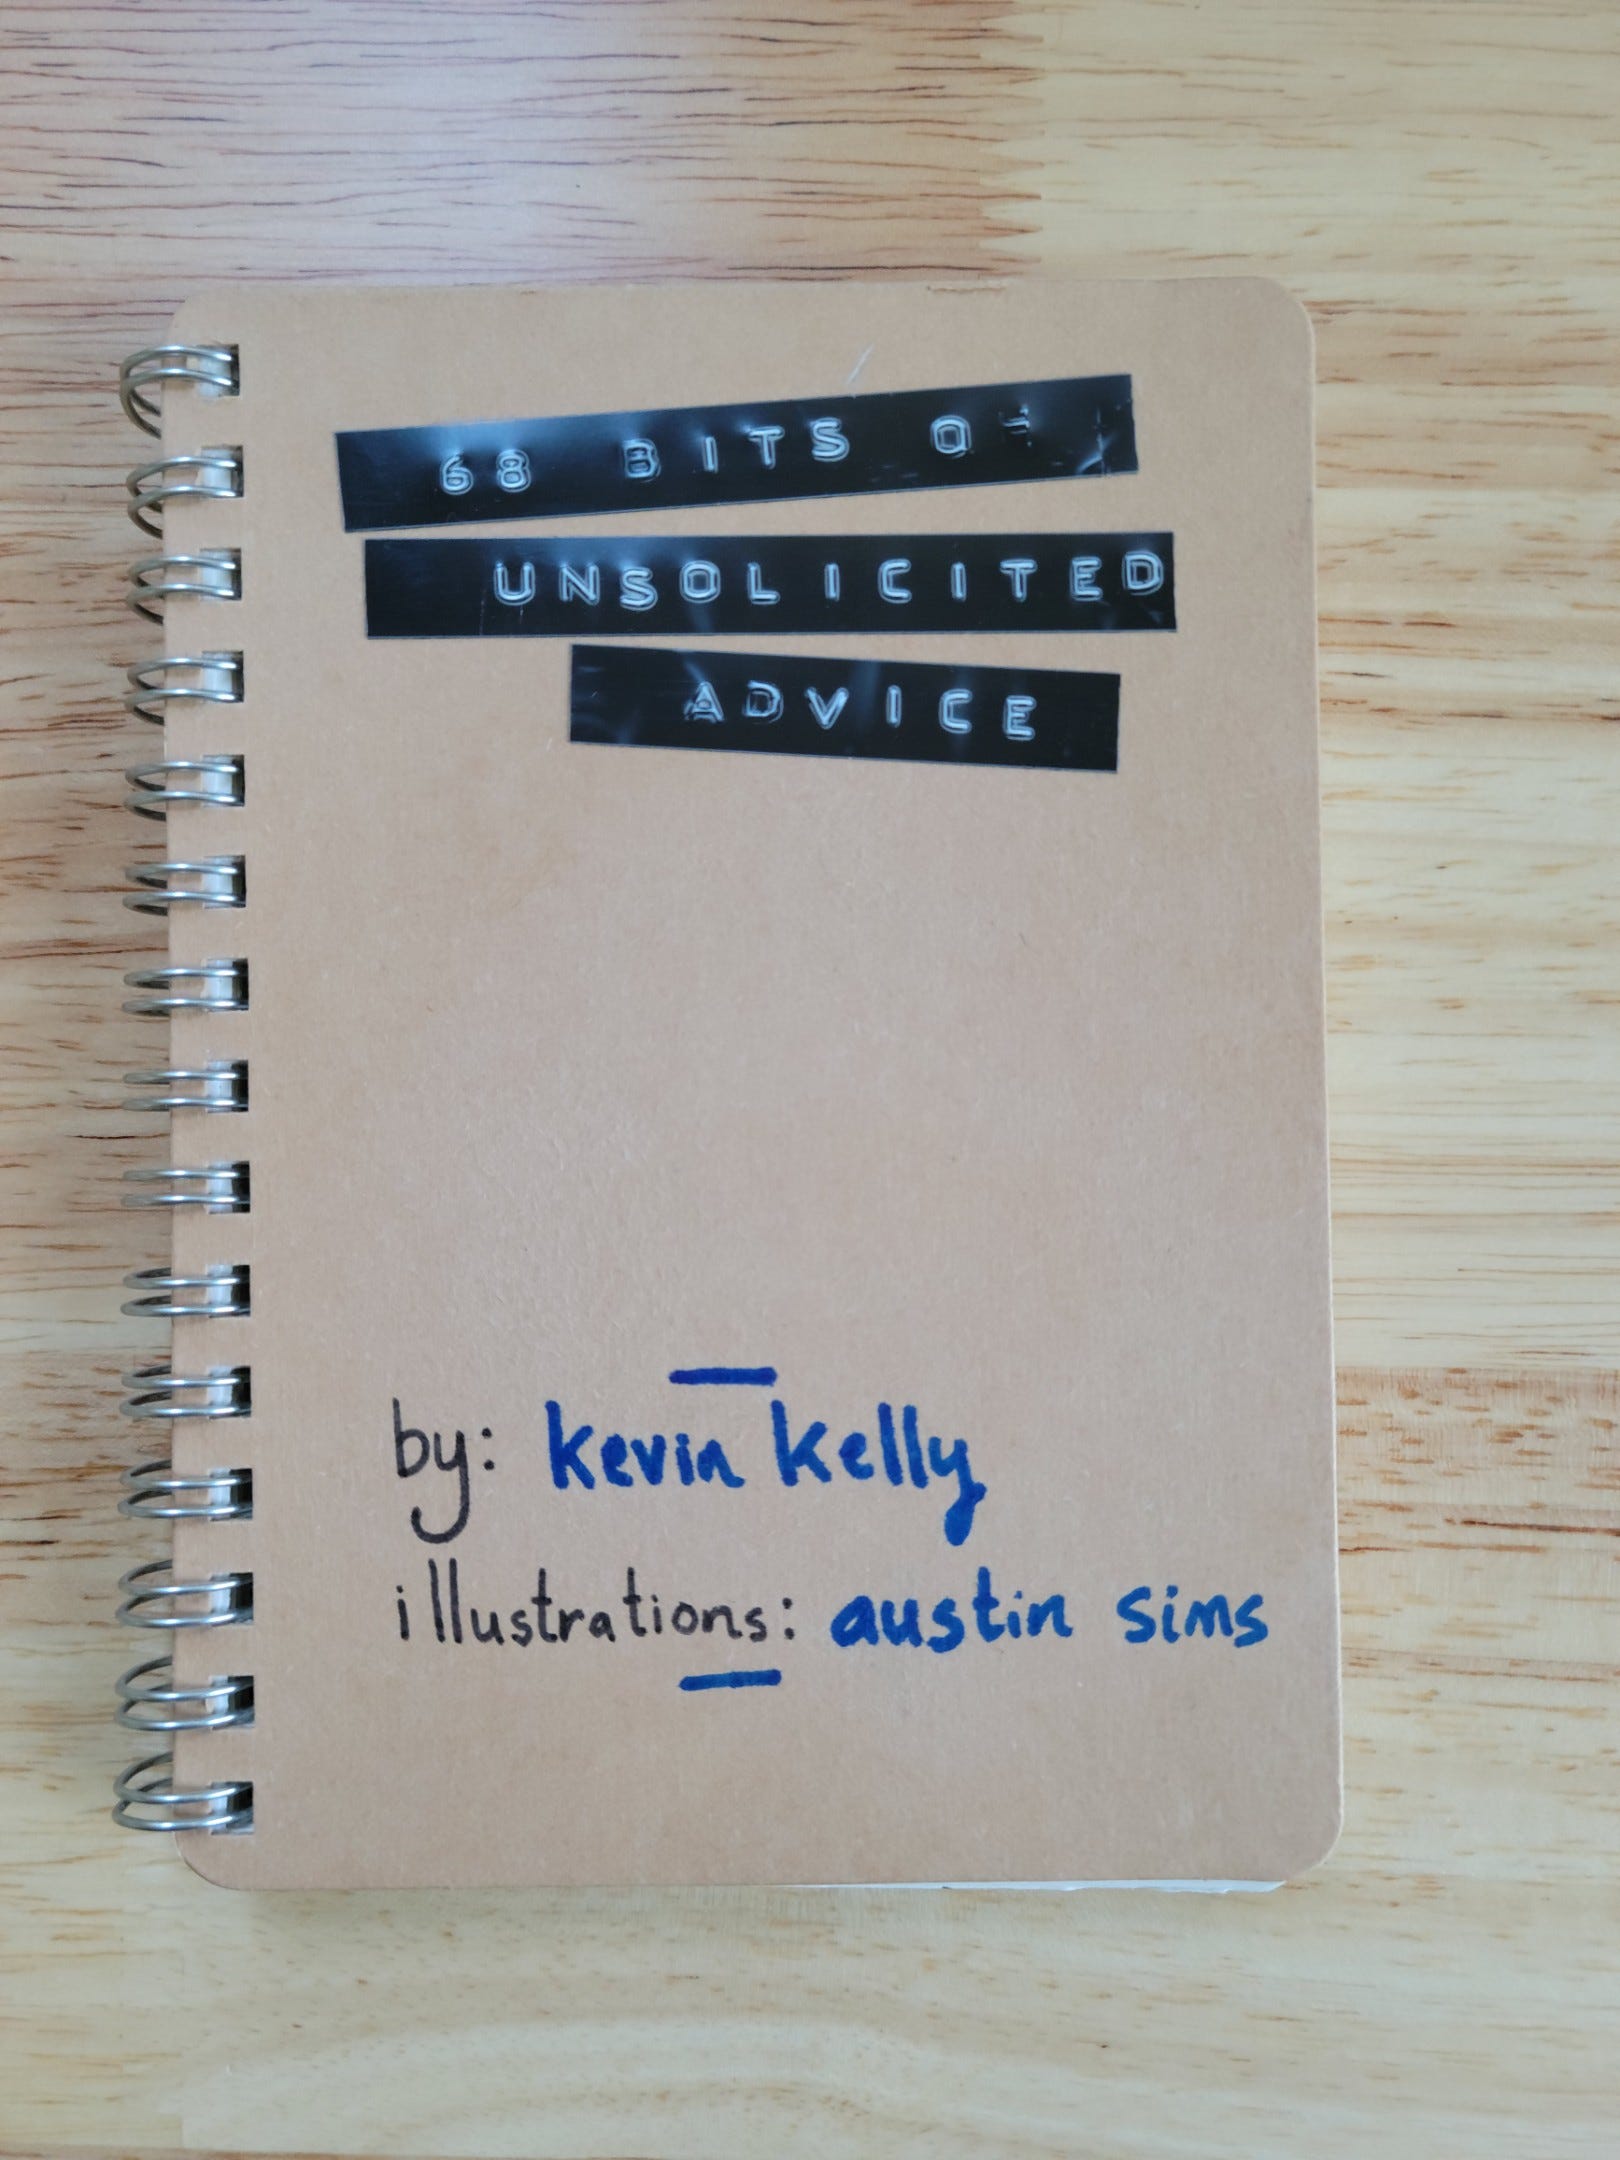 68 BITS OF
UNSOLICITED
ADVICE
by: kevin kelly
illustrations: austin sims